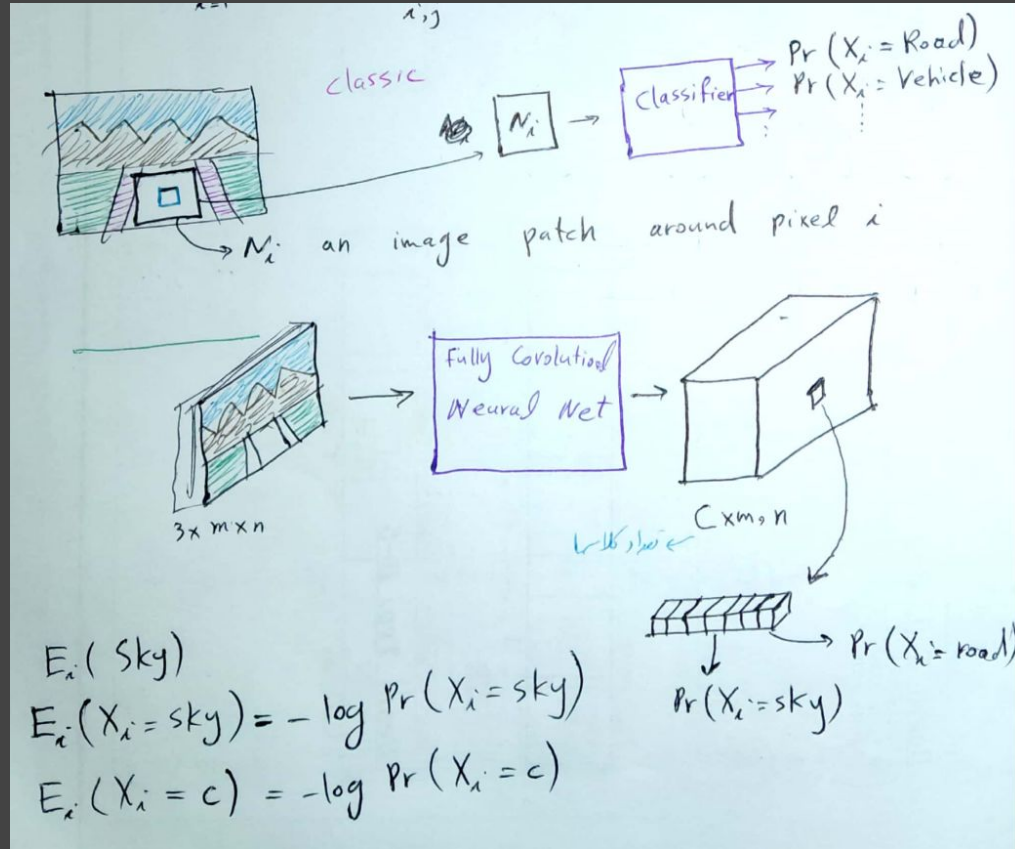 i=1
i,j
classic
Nᵢ
Classifier
Pr (Xᵢ = Road)
Pr (Xᵢ = Vehicle)
Nᵢ an image patch around pixel i
Fully Corolutional
Neural Net
3 x m x n
C x m, n
تعداد کلاسها
Pr (Xᵢ = road)
Pr (Xᵢ = sky)
Eᵢ ( Sky)
Eᵢ (Xᵢ = sky) = - log Pr (Xᵢ = sky)
Eᵢ (Xᵢ = c) = -log Pr (Xᵢ = c)